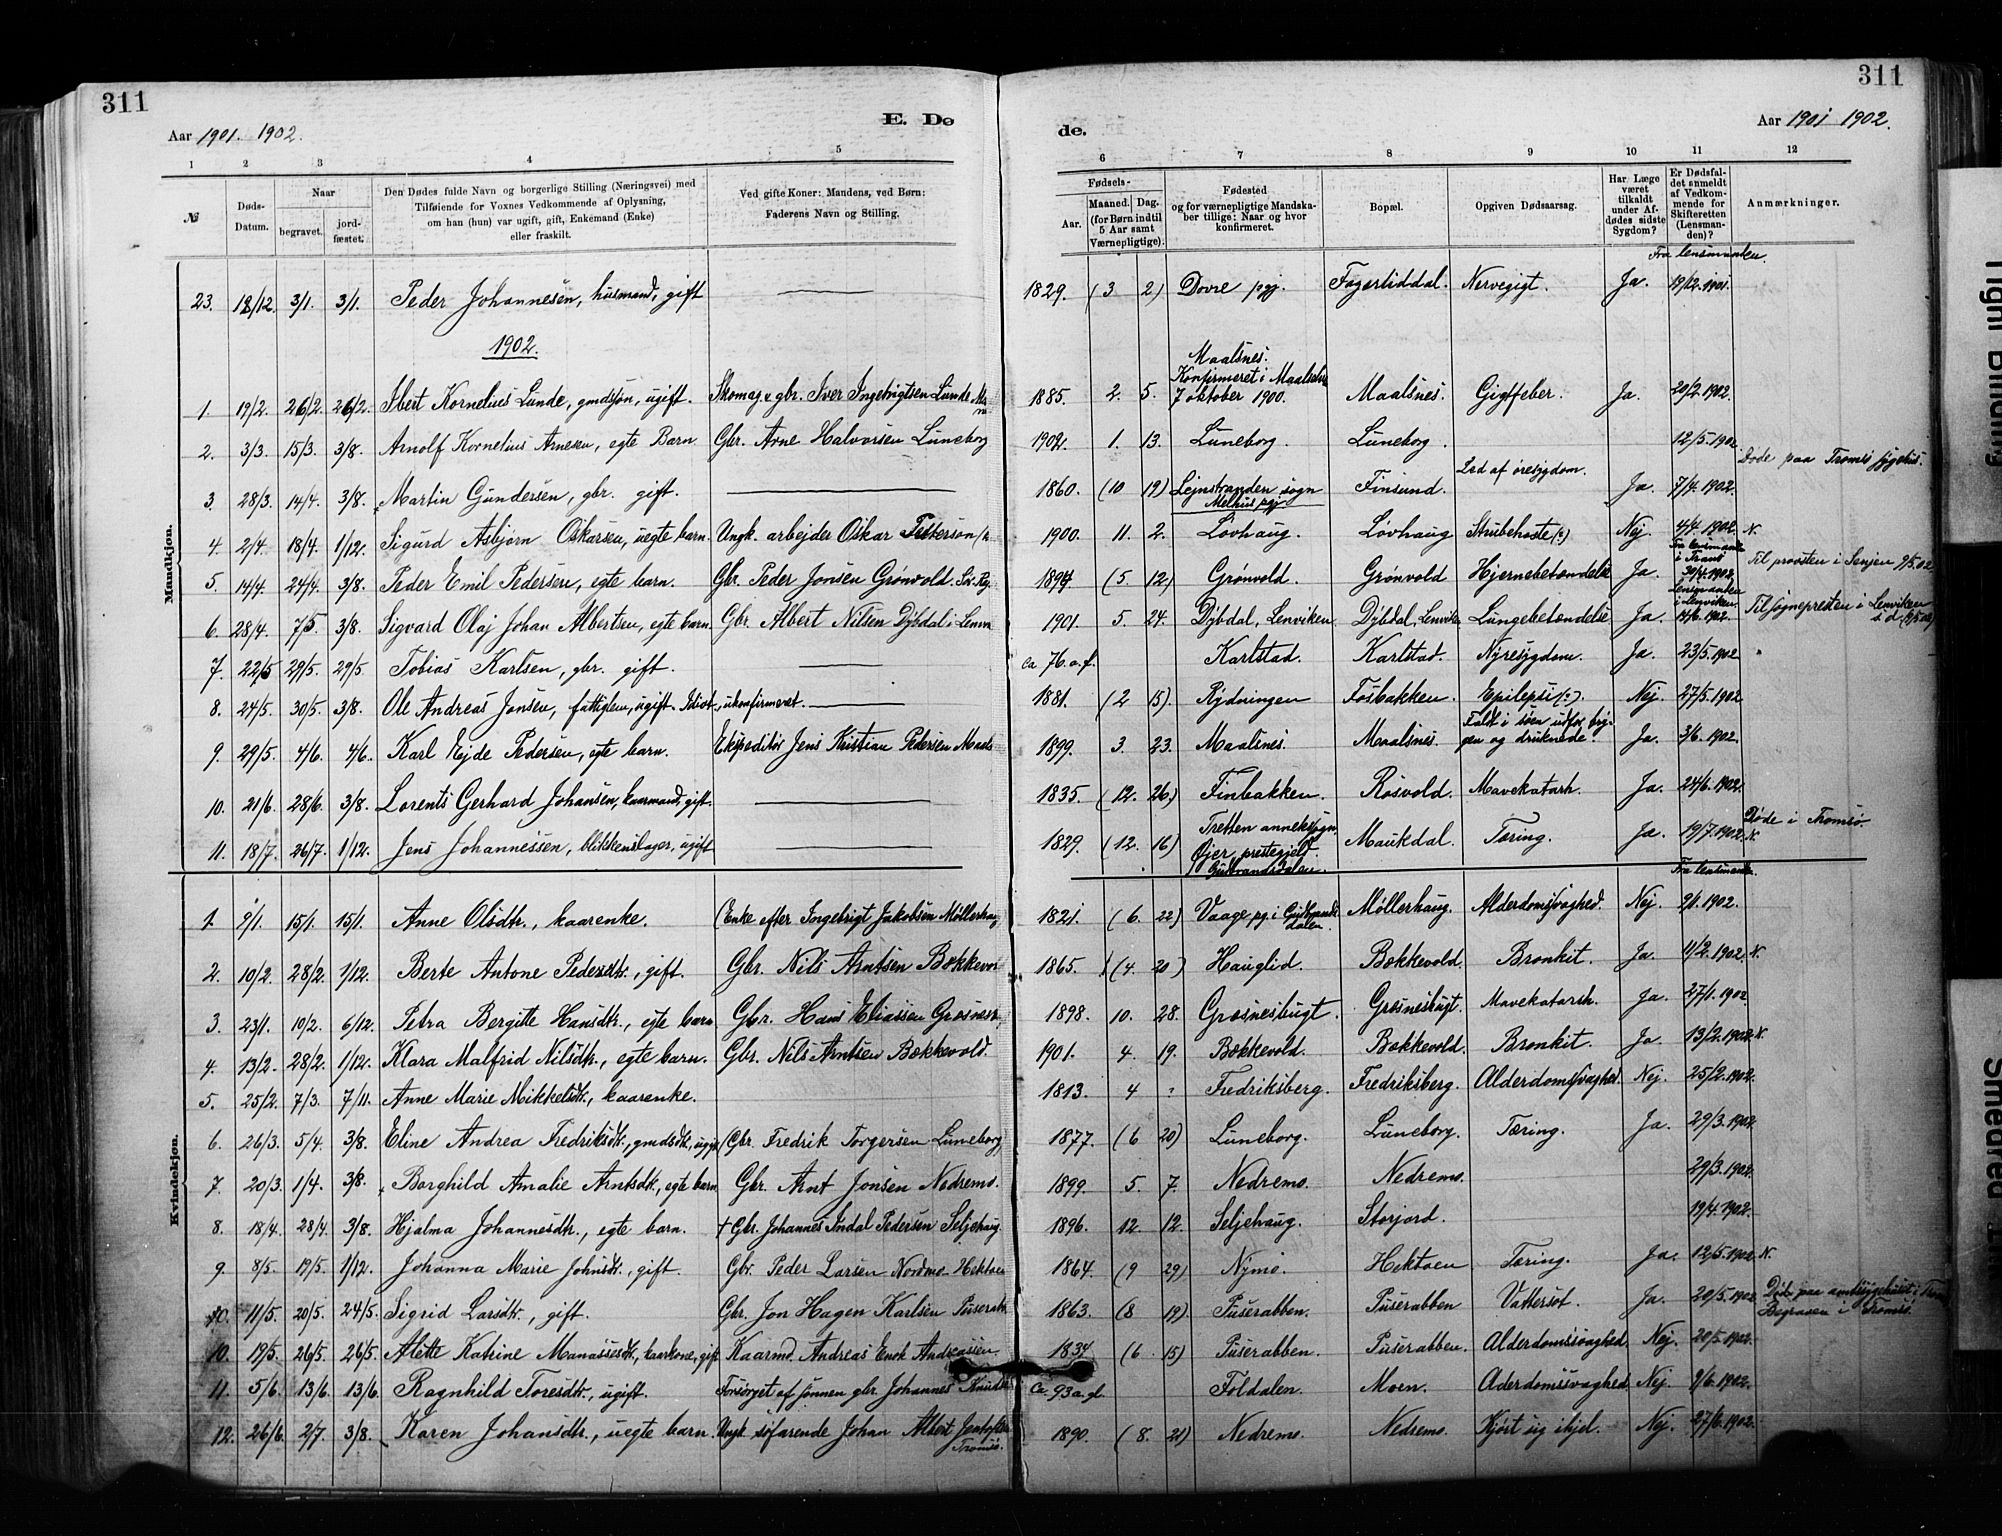 311
311
Aar 1901. 1902.
E. Dø
de.
Aar 1901 1902.
1 2 3 4 5 6 7 8 9 10 11 12
№
Døds-Datum.
Naar
begravet.
jord-fæstet.
Den Dødes fulde Navn og borgerlige Stilling (Næringsvei) med
Tilføiende for Voxnes Vedkommende af Oplysning,
om han (hun) var ugift, gift, Enkemand (Enke)
eller fraskilt.
Ved gifte Koner: Mandens, ved Børn:
Faderens Navn og Stilling.
Fødsels-
Aar.
Maaned. Dag.
(for Børn indtil
5 Aar samt
Værnepligtige).
Fødested
og for værnepligtige Mandska-
ber tillige: Naar og hvor
konfirmeret.
Bopæl.
Opgiven Dødsaarsag.
Har Læge
været
tilkaldt
under Af-
dødes sidste
Sygdom?
Er Dødsfal-
det anmeldt
af Vedkom-
mende for
Skifteretten
(Lensman-
den)?
Anmærkninger.
Mandkjøn.
Fra lensmanden.
23. 18/12. 3/1. 3/1. Peder Johannesen, husmand, gift 1829. (3 2) Dovre pgj. Fagerliddal. Nervegigt. Ja. 19/12.1901.
1902.
1. 19/2. 26/2. 26/2. Ibert Kornelius Lunde, gmdsøn, ugift. Skomag. & gbr. Iver Ingebrigtsen Lunde 1885. 2. 5. Maalsnes. Konfirmeret i Maalselv 7 oktober 1900. Maalsnes. Gigtfeber. Ja. 20/2.1902.
2. 3/3. 15/3. 3/8. Arnolf Kornelius Arnesen, egte Barn Gbr. Arne Halvorsen Luneborg 1902. 1. 13. Luneborg. Luneborg. 12/5.1902
3. 28/3. 14/4. 3/8. Martin Gundersen, gbr. gift. 1860. (10 19) Lejnstranden sogn Melhus pgj Finsund. Led af øresygdom. Ja. 7/4.1902. Døde paa Tromsø sygehus.
4. 2/4. 18/4. 1/12. Sigurd Asbjørn Oskarsen, uegte barn. Ungk. arbejder Oskar Petterson 1900. 11. 2. Løvhaug. Løvhaug Strubehoste(?) Nej. 4/4.1902. N.
5. 14/4. 24/4. 3/8. Peder Emil Pedersen, egte barn. Gbr. Peder Jonsen Grønvold. 1894 (5 12) Grønvold. Grønvold Hjernebetændelse Ja. Fra lensmanden i Tromsø 30/4.1902. Til provsten i Senjen 9/5.02
6. 28/4. 7/5. 3/8. Sigvard Olaj Johan Albertsen, egte barn. Gbr. Albert Nilsen Dybdal i Lenvi 1901. 5. 24. Dybdal, Lenviken Dybdal, Lenviken Lungebetændelse Ja. Lensmanden i Lenviken. 14/6.1902. Til sognepresten i Lenviken
7. 22/5 29/5. 29/5 Tobias Karlsen, gbr. gift. ca 76. a. g. Karlstad. Karlstad. Nyresygdom. Ja. 23/5.1902
8. 24/5. 30/5. 3/8. Ole Andreas Jonsen, fattiglem, ugift. Idiot, ukonfirmeret. 1881. (2 15). Rydningen Fosbakken. Epilepsi(?). Nej. 27/5.1902
9. 29/5. 4/6. 4/6. Karl Ejde Pedersen, egte barn. Ekspeditør Jens Kristian Pedersen Maals 1899. 3. 23. Maalsnes. Maalsnes. Faldt i søen udfor bryg- gen og druknede. Ja. 3/6.1902.
10. 21/6. 28/6. 3/8. Lorents Gerhard Johansen, kaarmand, gift. 1835. (12. 26.) Finbakken. Rosvold. Mavekatarh. Ja. 24/6.1902.
11. 18/7. 26/7. 1/12. Jens Johannessen, blikkenslager, ugift 1829. (12. 16) Tretten annekssogn, Øjer prestegjeld. Gudbrandsdalen. Maukdal. Tæring. Ja. 19/7.1902. N. Døde i Tromsø.
Kvindekjøn.
Fra lensmanden.
1. 9/1. 15/1. 15/1. Anne Olsdtr., kaarenke. (Enke efter Ingebrigt Jakobsen Møllerhaug 1821. (6. 22) Vaage pg. i Gudbrands dalen. Møllerhaug. Alderdomssvaghed. Nej. 9/1.1902.
2. 10/2. 28/2. 1/12. Berte Antone Pedersdtr., gift. Gbr. Nils Arntsen Bækkevol 1865. (4. 20) Hauglid. Bækkevold. Bronkit. Ja. 11/2.1902. N.
3. 23/1. 10/2. 6/12. Petra Bergitte Hansdtr., egte barn Gbr. Hans Eliassen Grøsnes 1898. 10. 28. Grøsnesbugt. Grøsnesbugt. Mavekatarrh. Ja. 27/1.1902
4. 13/2. 28/2. 1/12. Klara Malfrid Nilsdtr., egte barn. Gbr. Nils Arntsen Bækkevold. 1901. 4. 19. Bækkevold. Bækkevold. Bronkit. Ja. 13/2.1902. N.
5. 25/2. 7/3. 7/11. Anne Marie Mikkelsdtr., kaarenke. 1813. 4 ? Fredriksberg. Fredriksberg. Alderdomssvaghed. Nej. 25/2.1902.
6. 26/3. 5/4. 3/8. Eline Andrea Fredriksdtr., gmdsdtr., ugift (Gbr. Fredrik Torgersen Luneborg) 1877. (6 20) Luneborg. Luneborg. Tæring. Ja. 29/3.1902.
7. 20/3. 1/4. 3/8. Borghild Amalie Arntsdtr., egte barn Gbr. Arnt Jonsen Nedremo. 1899. 5. 7. Nedremo. Nedremo. 29/3.1902.
8. 18/4. 28/4 3/8. Hjalma Johannesdtr., egte barn. † Gbr. Johannes Indal Pedersen Seljehaug 1896. 12. 12. Seljehaug. Storjord. 19/4.1902.
9. 8/5. 19/5. 1/12. Johanna Marie Johnsdtr., gift. Gbr. Peder Larsen Nordmo - Hektoen 1864. (9 29) Nymo. Hektoen Tæring. Ja. 12/5.1902. N.
10. 11/5. 20/5. 24/5. Sigrid Larsdtr., gift. Gbr. Jon Hagen Karlsen Puserab 1863. (8 19) Puserabben. Puserabben Vattersot. Ja. 20/5.1902 Døde paa amtssygehuset i Tromsø Begraven i Tromsø.
10. 19/5. 26/5. 26/5. Alette Katrine Manassesdtr., kaarkone, gift Kaarmd. Andreas Enok Andreassen. 1834 (6. 15) Puserabben. Puserabben. Alderdomssvaghed. Nej. 20/5.1902.
11. 5/6. 13/6. 13/6. Ragnhild Toresdtr., ugift. Forsørget af sønnen gbr. Johannes Knuds Ca. 93 a. gl. Foldalen. Moen. Alderdomssvaghed Nej. 9/6.1902.
12. 26/6. 2/7. 3/8. Karen Johansdtr., uegte barn. Ungk søfarende Johan Albert Tromsø. 1890. (8. 21) Nedremo. Nedremo. Kjørt sig ihjel. Nej. 27/6.1902.
Tight Binding